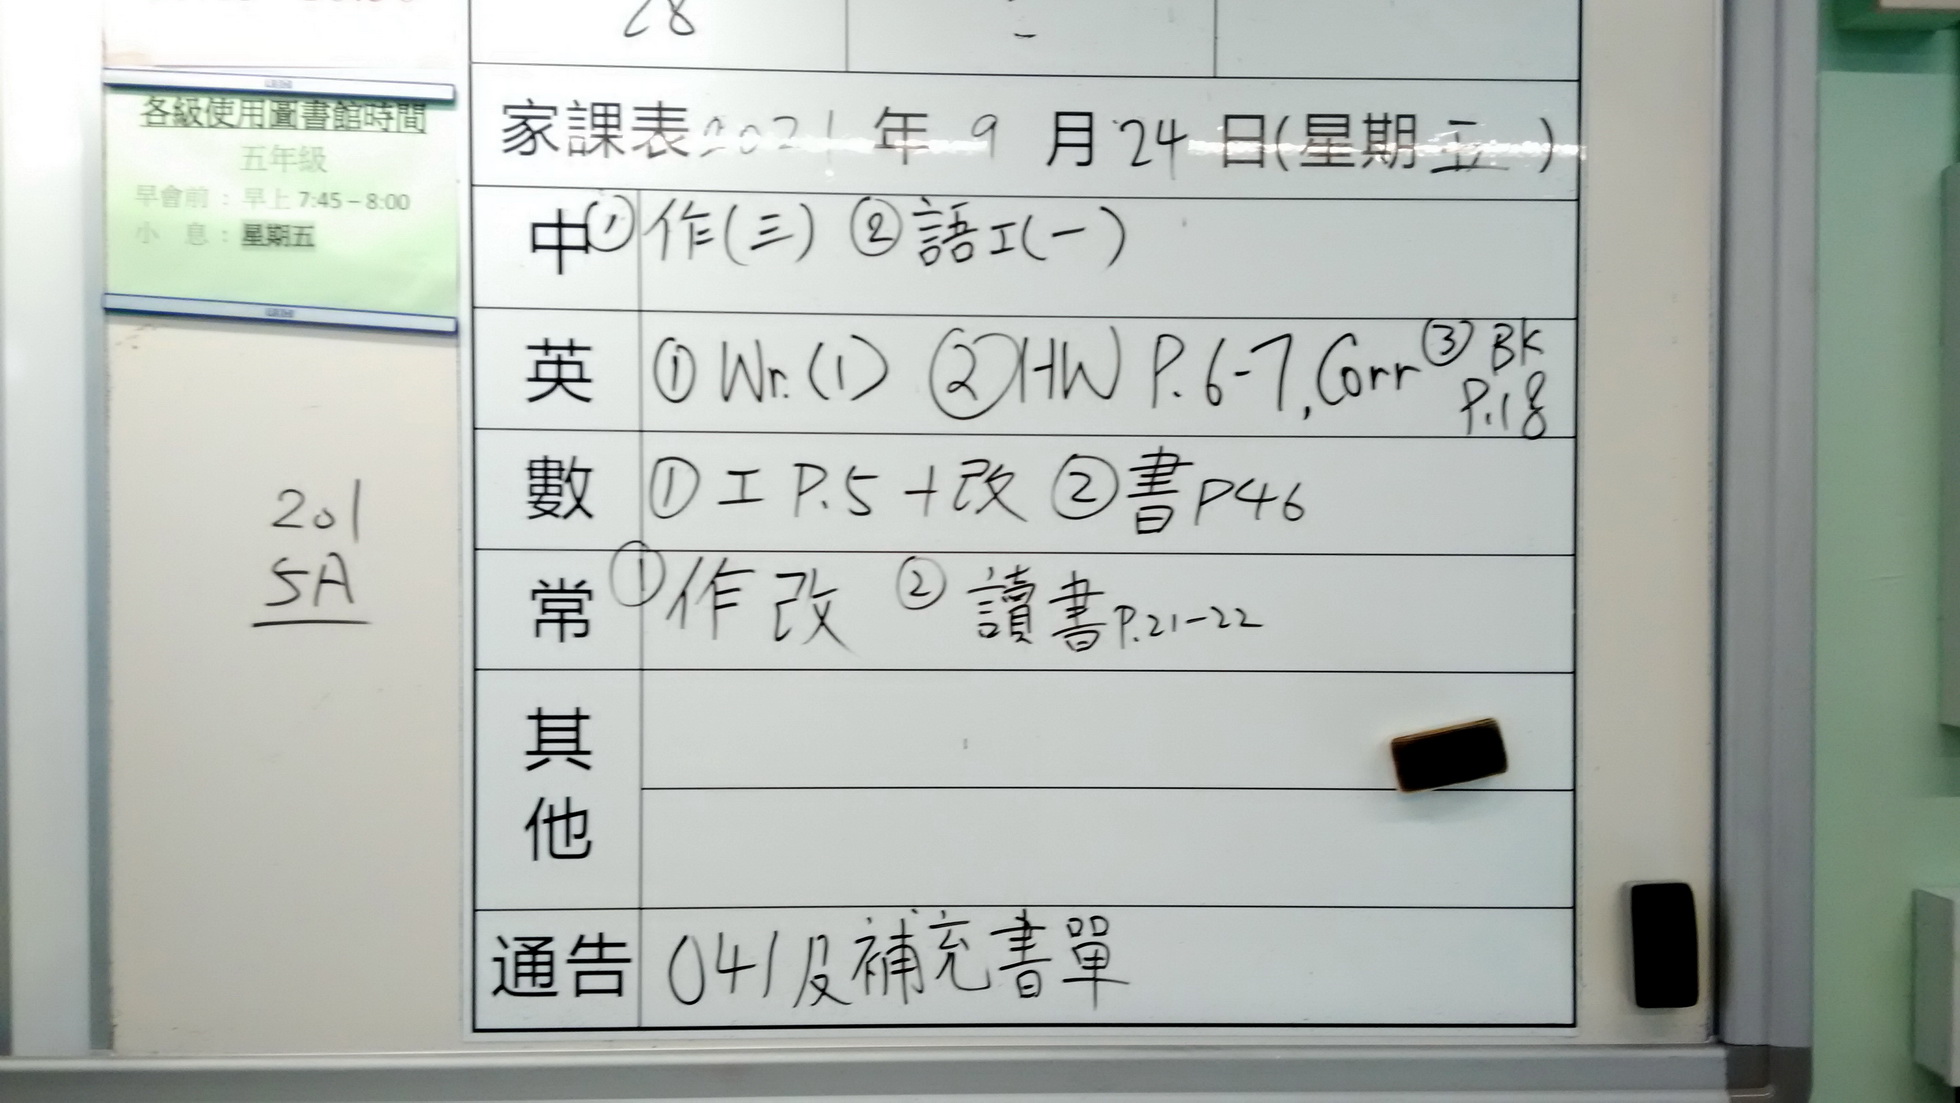 28
各級使用圖書館時間
五年級
早會前：早上 7:45 – 8:00
小 息：星期五
201
5A
家課表 2021 年 9 月 24 日(星期五)
中 ① 作(三) ② 語工(一)
英 ① Wr.(1) ② HW P.6-7, Corr ③ BK
P.18
數 ① 工 P.5 + 改 ② 書 P46
常 ① 作改 ② 讀書 P.21-22
其
他
通告 041及補充書單